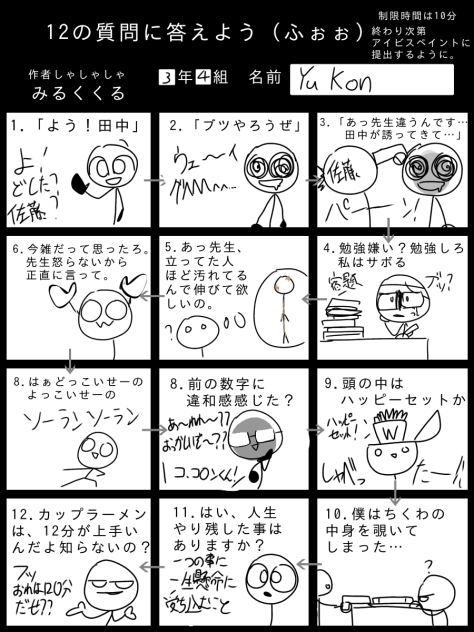 12の質問に答えよう（ふぉぉ）
制限時間は10分
終わり次第
アイビスペイントに
提出するように。
作者しゃしゃしゃ
みるくくる
3年4組 名前 Yu Kon
1.「よう！田中」
よ！
どした？
佐藤？
2.「ブツやろうぜ」
ウェ〜イ
3.「あっ先生違うんです…
田中が誘ってきて…」
佐藤
パーン！
4.勉強嫌い？勉強しろ
私はサボる
宿題
5.あっ先生、
立ってた人
ほど汚れてる
んで伸びて欲
しいの。
?
6.今雑だって思ったろ。
先生怒らないから
正直に言って。
8.はぁどっこいせーの
よっこいせーの
ソーランソーラン
8.前の数字に
違和感感じた？
あ〜れれ〜??
おっかしいぞ〜??
コ コロンくん!
9.頭の中は
ハッピーセットか
ハッピー
セット！
W
10.僕はちくわの
中身を覗いて
しまった…
?
11.はい、人生
やり残した事は
ありますか？
一つの事に
一生懸命に
打ち込むこと
12.カップラーメン
は、12分が上手い
んだよ知らないの？
フッ
おれは120分
だぜ??